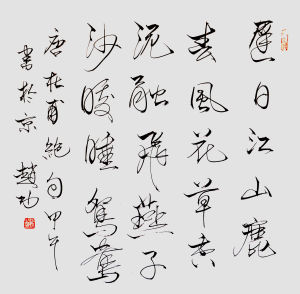 遲日江山麗
春風花草香
泥融飛燕子
沙暖睡鴛鴦
唐杜甫絕句甲午
書於京趙